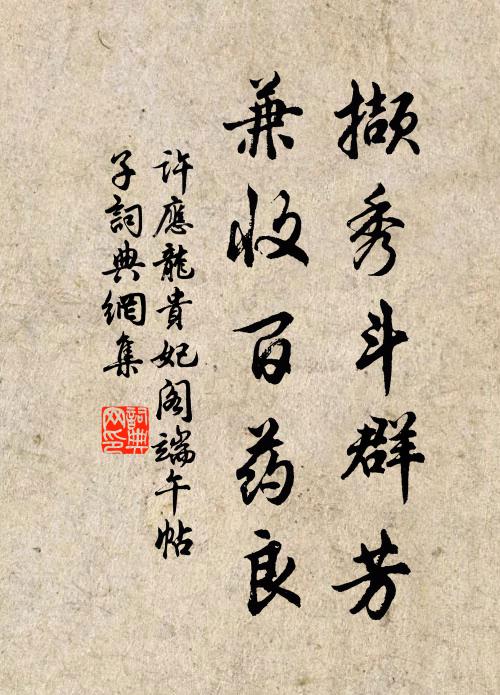 撷秀斗群芳
兼收百药良
許應龍貴妃阁端午帖
子詞典網集
詞典网印